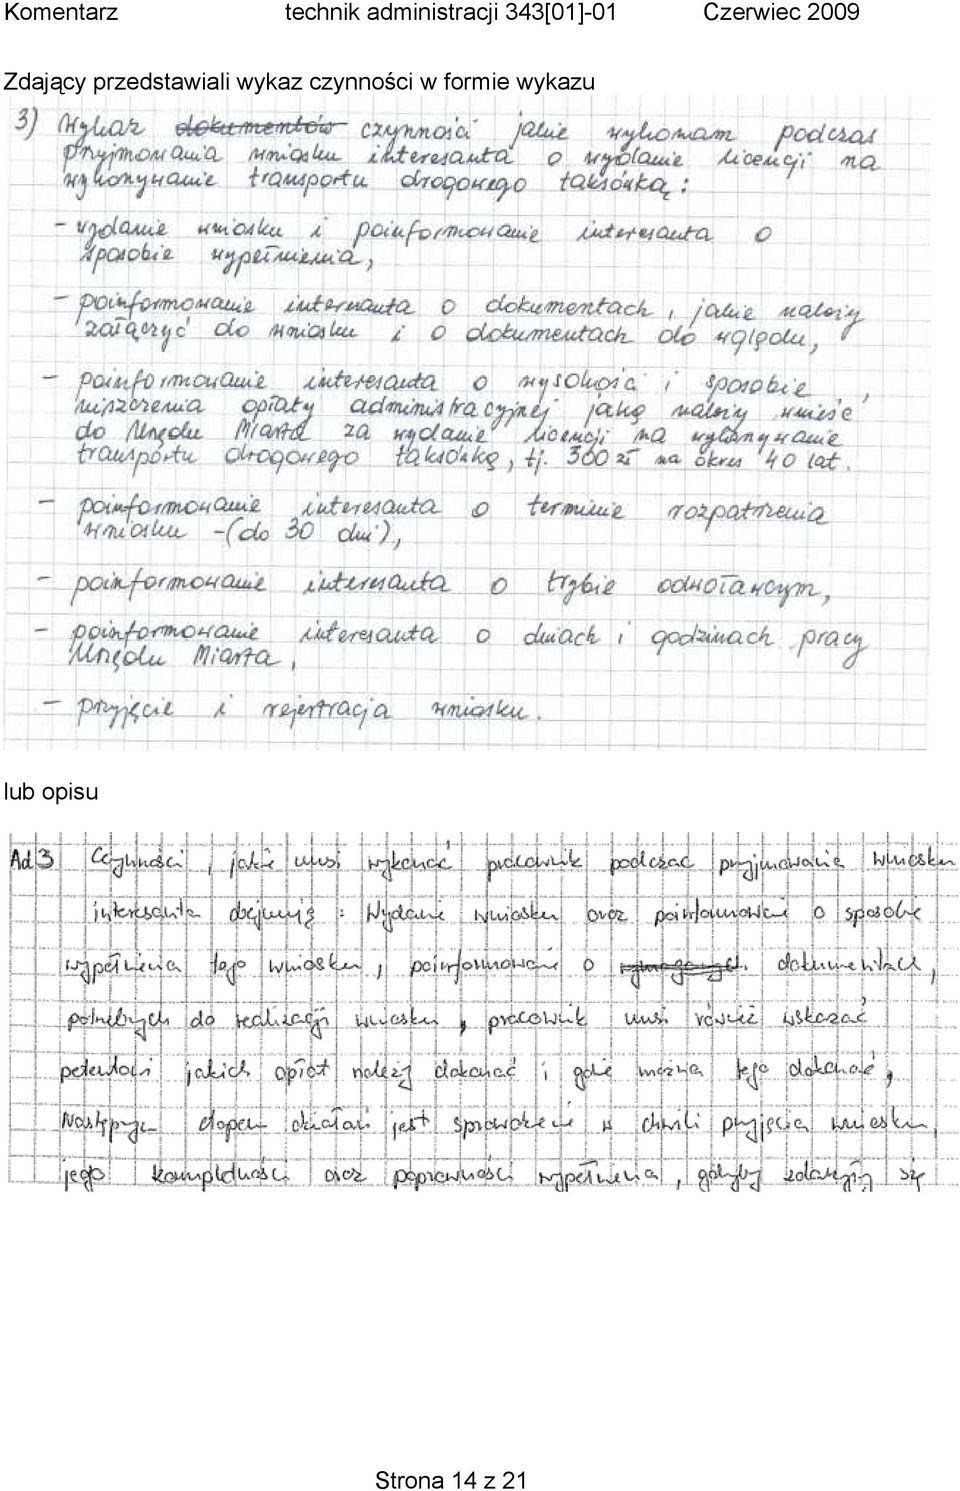 Komentarz technik administracji 343[01]-01 Czerwiec 2009
Zdający przedstawiali wykaz czynności w formie wykazu
3) Wykaz dokumentów czynności jakie wykonam podczas
przyjmowania wniosku interesanta o wydanie licencji na
wykonywanie transportu drogowego taksówką:
- wydanie wniosku i poinformowanie interesanta o
sposobie wypełnienia,
- poinformowanie interesanta o dokumentach, jakie należy
załączyć do wniosku i o dokumentach do wglądu,
- poinformowanie interesanta o wysokości i sposobie
uiszczenia opłaty administracyjnej jaką należy wnieść
do Urzędu Miasta za wydanie licencji na wykonywanie
transportu drogowego taksówką, tj. 300 zł na okres 40 lat.
- poinformowanie interesanta o terminie rozpatrzenia
wniosku -(do 30 dni),
- poinformowanie interesanta o trybie odwoławczym,
- poinformowanie interesanta o dniach i godzinach pracy
Urzędu Miasta,
- przyjęcie i rejestracja wniosku.
lub opisu
Ad 3 Czynności, jakie musi wykonać pracownik podczac przyjmowania wniosku
interesanta obejmują: Wydanie wniosku oraz poinformowanie o sposobie
wypełnienia tego wniosku, poinformowanie o dokumentach,
potrzebnych do realizacji wniosku, pracownik musi również wskazać
petentowi jakich opłat należy dokonać i gdzie można tego dokonać,
Następnym etapem działań jest sprawdzenie w chwili przyjęcia wniosku,
jego kompletności oraz poprawności wypełnienia, gdyby zdarzyją się
Strona 14 z 21